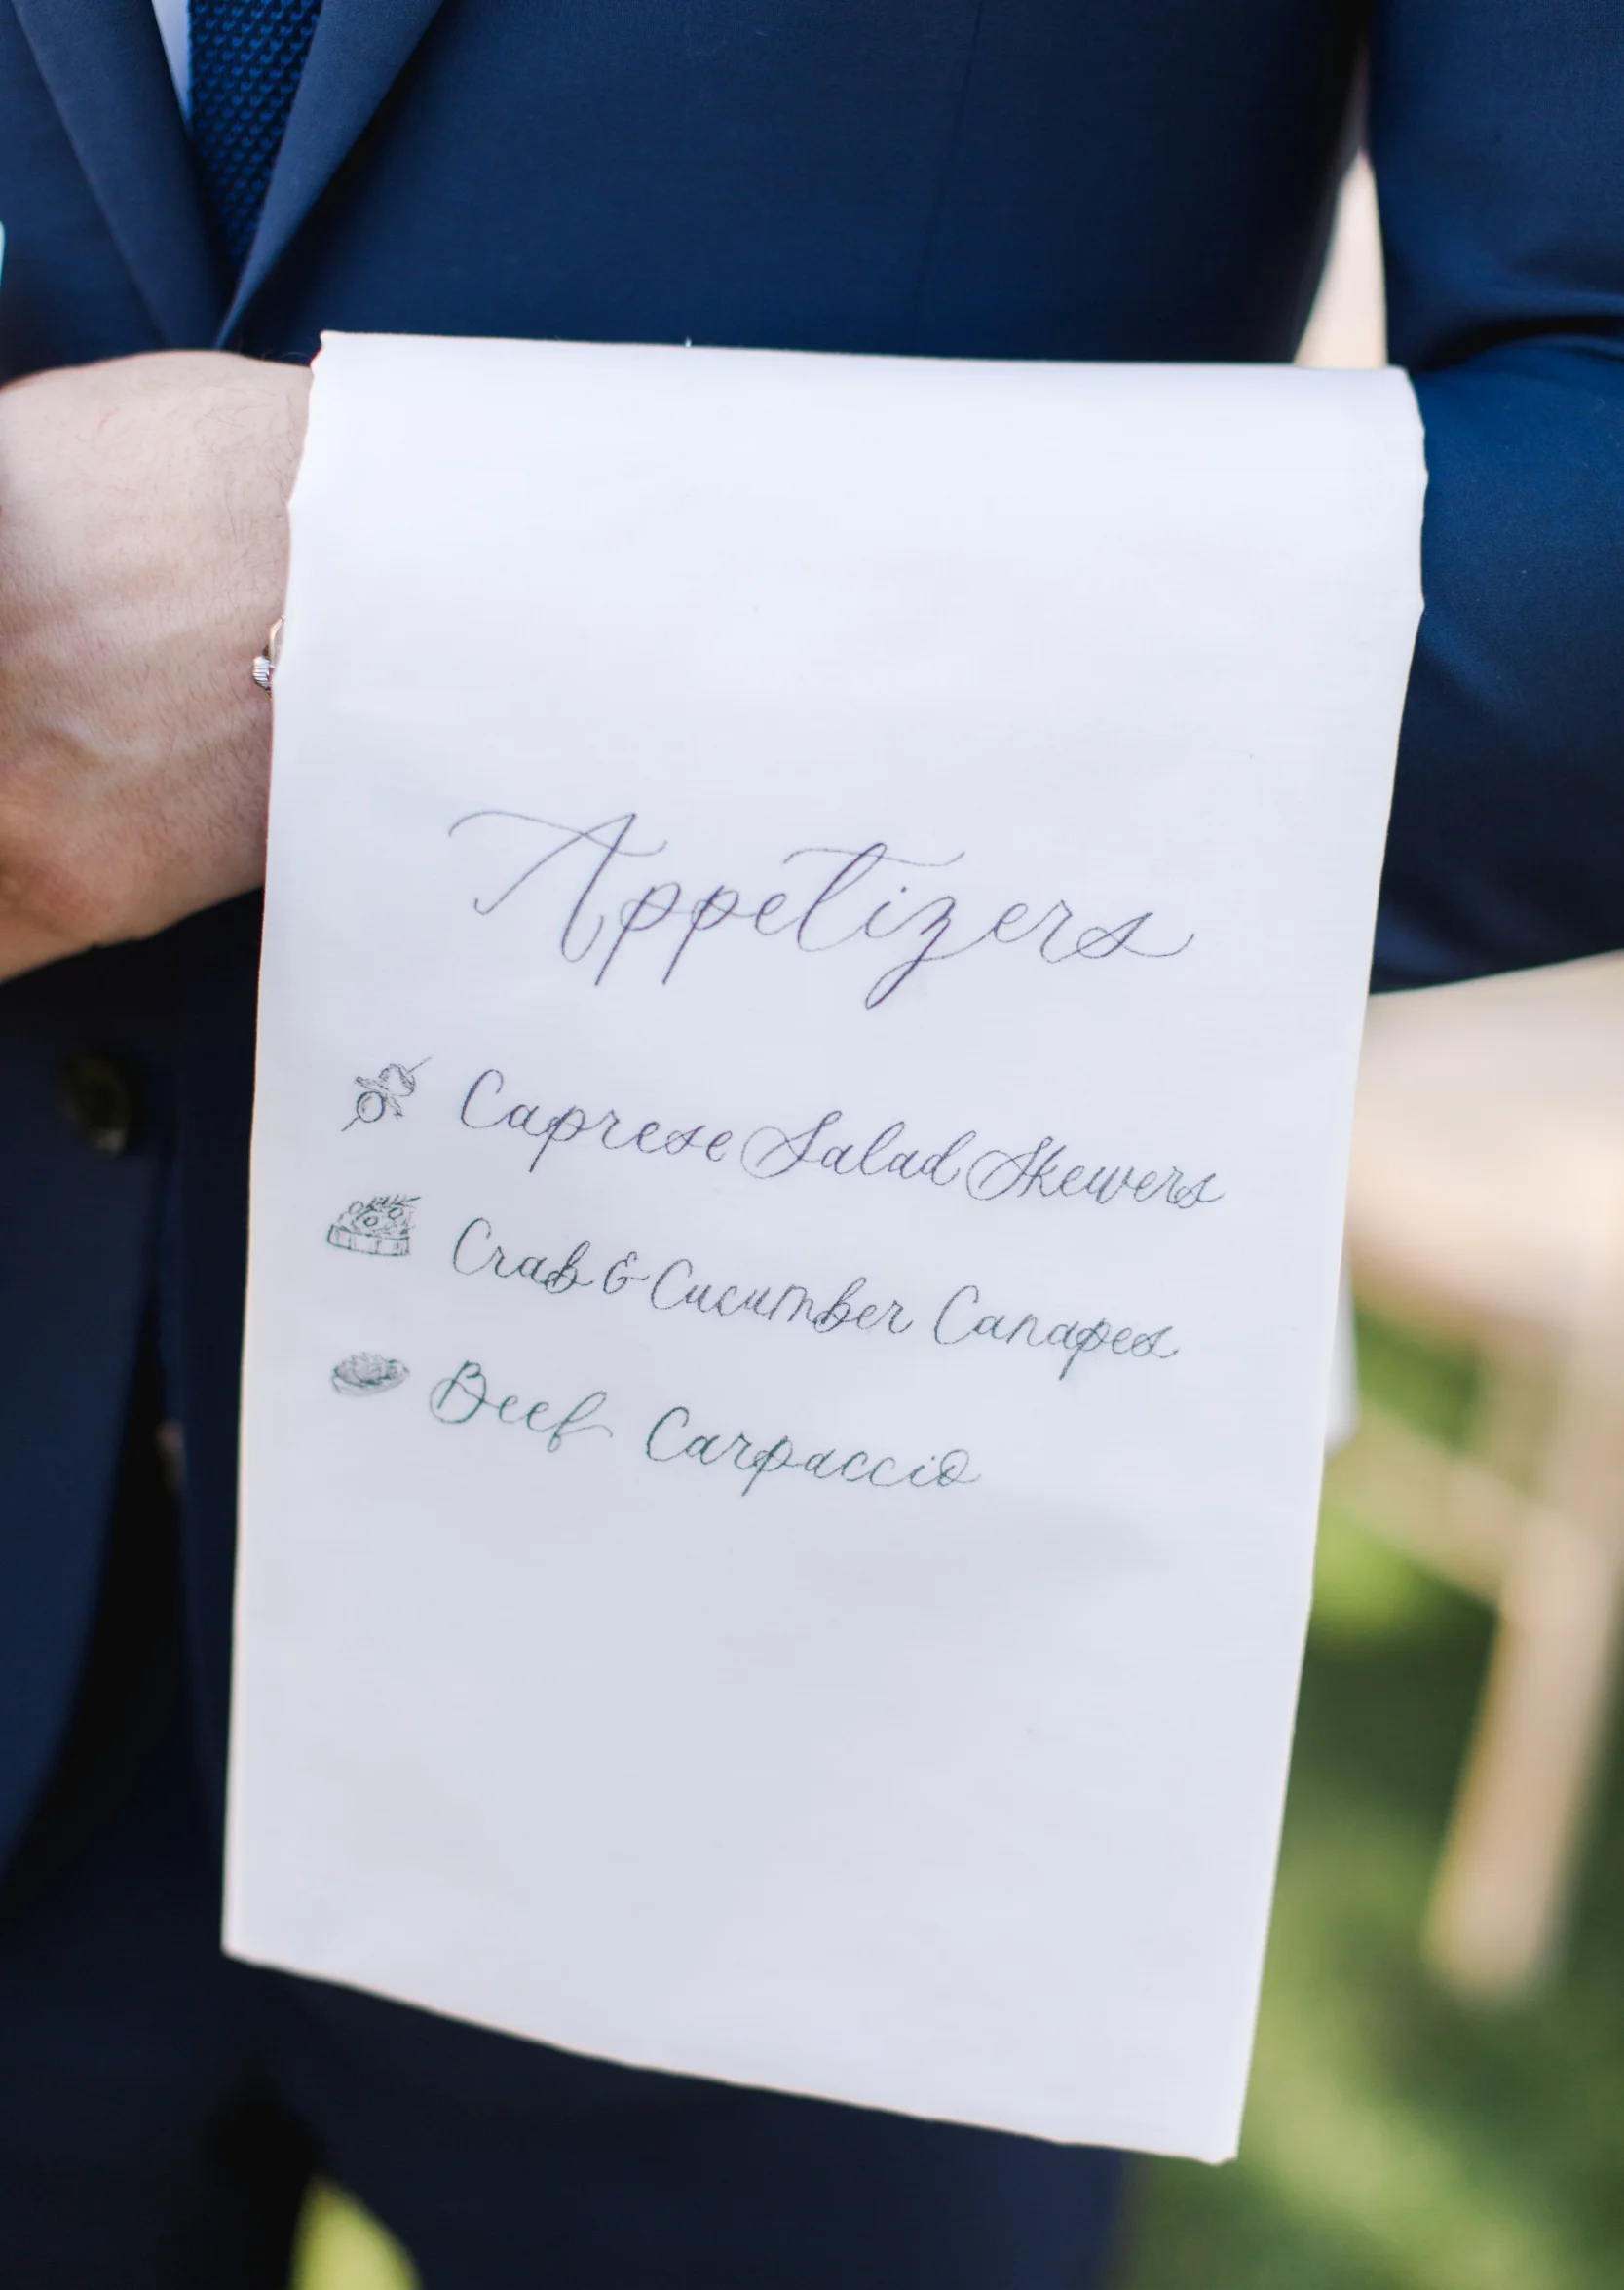 Appetizers
Caprese Salad Skewers
Crab & Cucumber Canapes
Beef Carpaccio